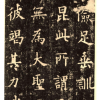 儉足垂訓
昆此所謂
無為大聖
彼竭其力